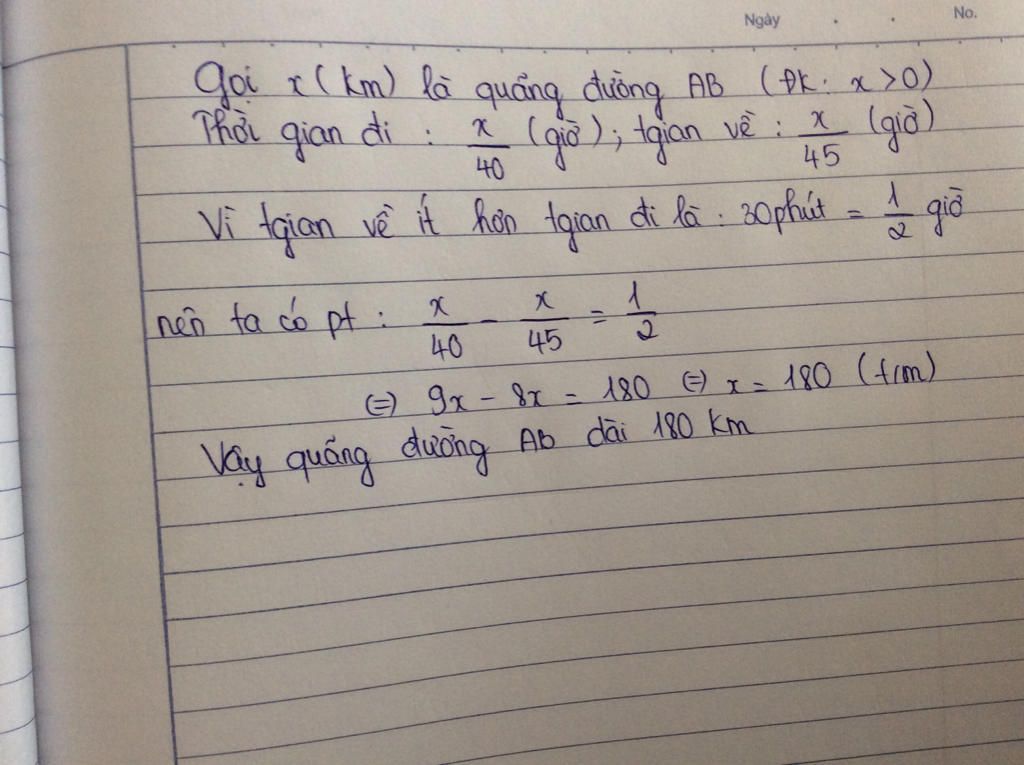 Ngày . . No.
Gọi x (km) là quãng đường AB (ĐK: x > 0)
Thời gian đi : x/40 (giờ); tgian về : x/45 (giờ)
Vì tgian về ít hơn tgian đi là : 30 phút = 1/2 giờ
nên ta có pt : x/40 - x/45 = 1/2
(=) 9x - 8x = 180 (=) x = 180 (t/m)
Vậy quãng đường AB dài 180 km